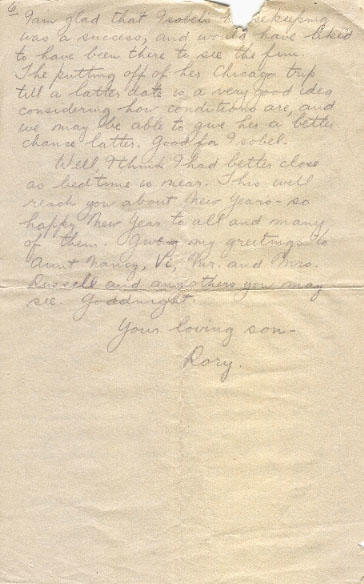 6
I am glad that Isobel's housekeeping
was a success, and would have liked
to have been there to see the fun.
The putting off of her Chicago trip
till a latter date is a very good idea
considering how conditions are, and
we may be able to give her a better
chance latter. Good for Isobel.
Well, I think I had better close
as bedtime is near. This will
reach you about New Years - so
happy New Year to all and many
of them. Give my greetings to
Aunt Nancy, Vi, Mr. and Mrs.
Russell and any others you may
see. Goodnight.
Your loving son -
Rory.